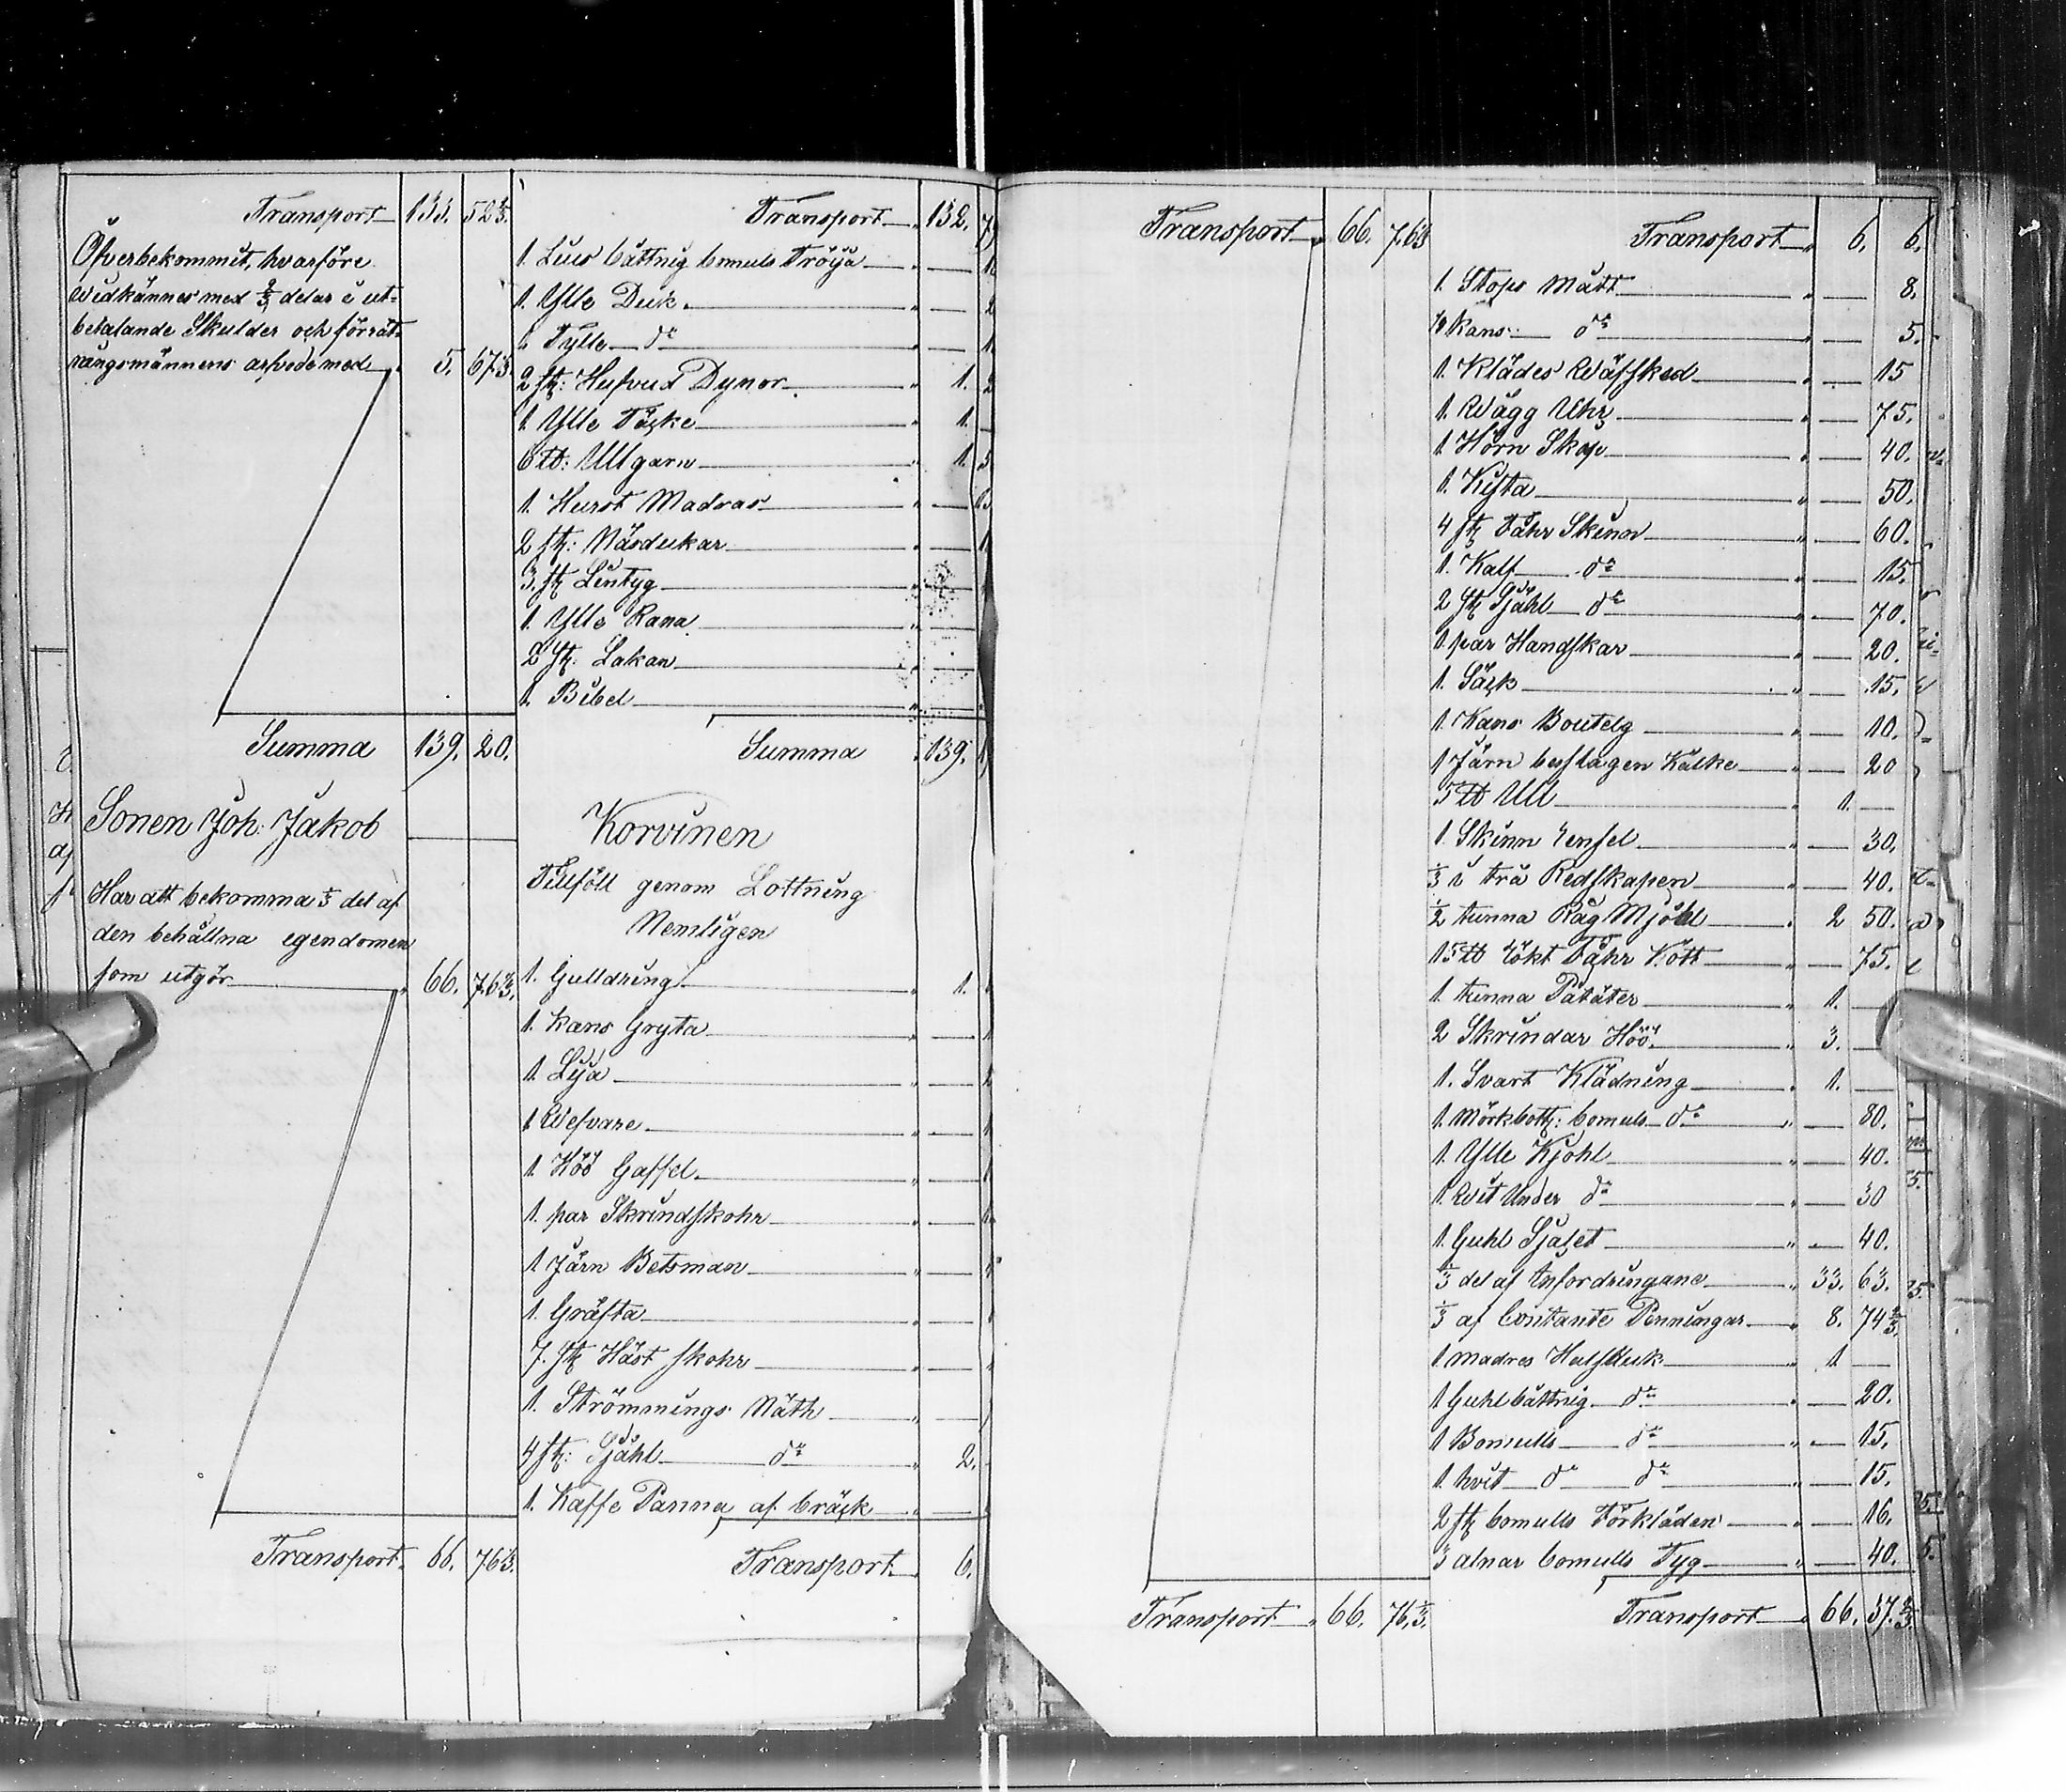 Transport 133. 52 2/3.
Öfverbekommit, hvarföre
widkännes med 2/3 delar i ut-
betalande Skulder och förrät-
ningsmännens arfvode med 5. 67 1/3.
Summa 139. 20.
Sonen Joh: Jakob
Har att bekomma 1/3 del af
den behållna egendomen
som utgör 66. 76 1/3.
Transport 66. 76 1/3.
Transport 132. 7
1. Lius båttnig bomuls Tröya
1. Ylle Duk
1. Tylle do
2 st: Hufvud Dynor 1. 2
1. Ylle Täcke 1.
6 lb: Ullgarn 1. 5
1. Hurst Madras
2 st: Näsdukar
3 st Lintyg
1. Ylle Rana
2 st: Lakan
1. Bibel
Summa 139.
Korvinen
Tillföll genom Lottning
Nemligen
1. Gulldring 1.
1. Kans Gryta
1. Lija
1 Wefvare
1. Höö Gaffel
1. par Skrindskohr
1 Järn Betsman
1. Gräfta
7. st Häst skohr
1. Strömmings Näth
4 st: Sjähl do 2.
1. Kaffe Panna af bräck
Transport 6.
Transport 66. 76 1/3
Transport 66. 76 1/3.
Transport 6. 6.
1. Stops Mått 8.
1/2 Kans do 5.
1. Klädes Wäfsked 15
1. Wägg Uhr 75.
1. Hörn Skåp 40.
1. Kista 50.
4 st Fåhr Skinn 60.
1. Kalf do 15.
2 st Sjähl do 70.
1 par Handskar 20.
1. Säck 15.
1. Kans Boutelg 10.
1 Järn beslagen Kälke 20
5 lb Ull 1.
1. Skinn 30.
1/3 i trä Redskapen 40.
1/2 tunna Råg Mjöhl 2 50.
15 lb rökt Fåhr Kött 75.
1. tunna Pätäter 1.
2 Skrindar Höö 3.
1. Svart Klädning 1.
1. Mörkbott: bomuls do 80.
1. Ylle Kjohl 40.
1. Wit Under do 30
1. Guhl Sjalet 40.
1/3 del af Anfordringane 33. 63.
1/3 af Contante Penningar 8. 74 2/3.
1 madres Halsduk 1
1 Guhlbåttnig do 20.
1 Bomulls do 15.
1. hvit do do 15.
2 st bomulls Förkläden 16.
3 alnar bomulls Tyg 40.
Transport 66. 37. 2/3.